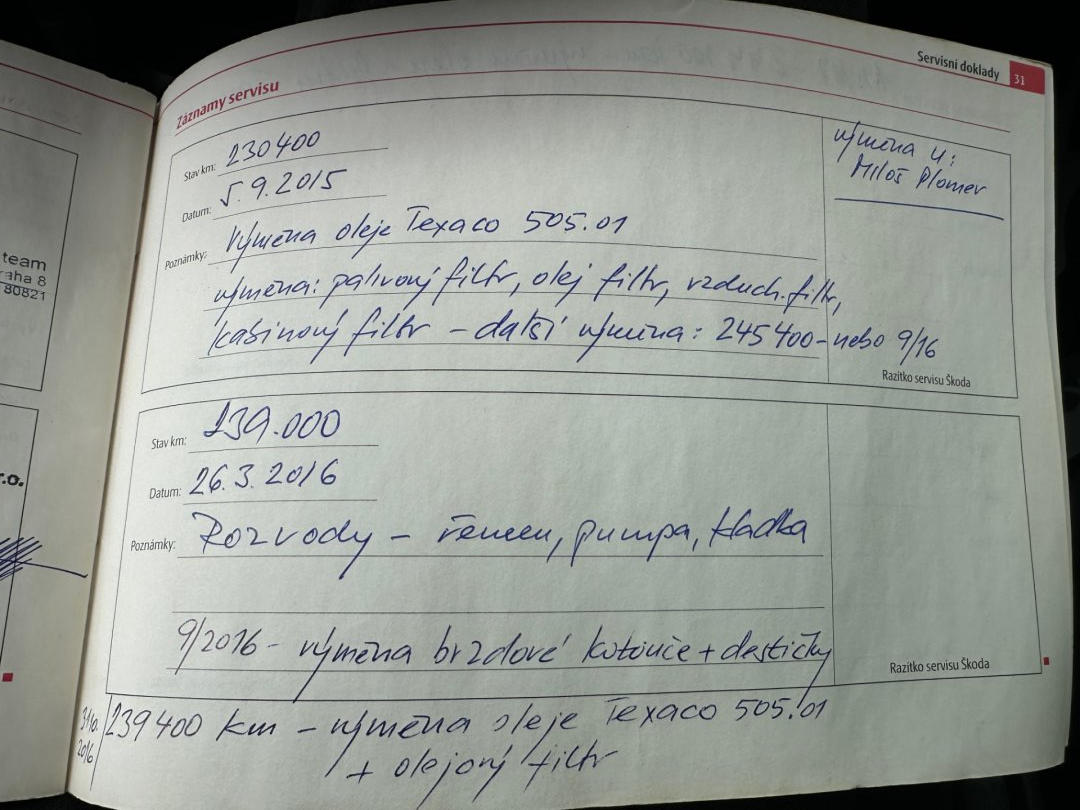 Servisní doklady 31
Záznamy servisu
team
raha 8
80821
r.o.
Stav km: 230400
Datum: 5.9.2015
Poznámky: Výměna oleje Texaco 505.01
výměna: palivový filtr, olej filtr, vzduch. filtr,
kabinový filtr - další výměna: 245400 - nebo 9/16
výměna u:
Miloš Plomer
Razítko servisu Škoda
Stav km: 239.000
Datum: 26.3.2016
Poznámky: Rozvody - řemen, pumpa, kladka
9/2016 - výměna brzdové kotouče + destičky
Razítko servisu Škoda
2016
239400 km - výměna oleje Texaco 505.01
+ olejový filtr